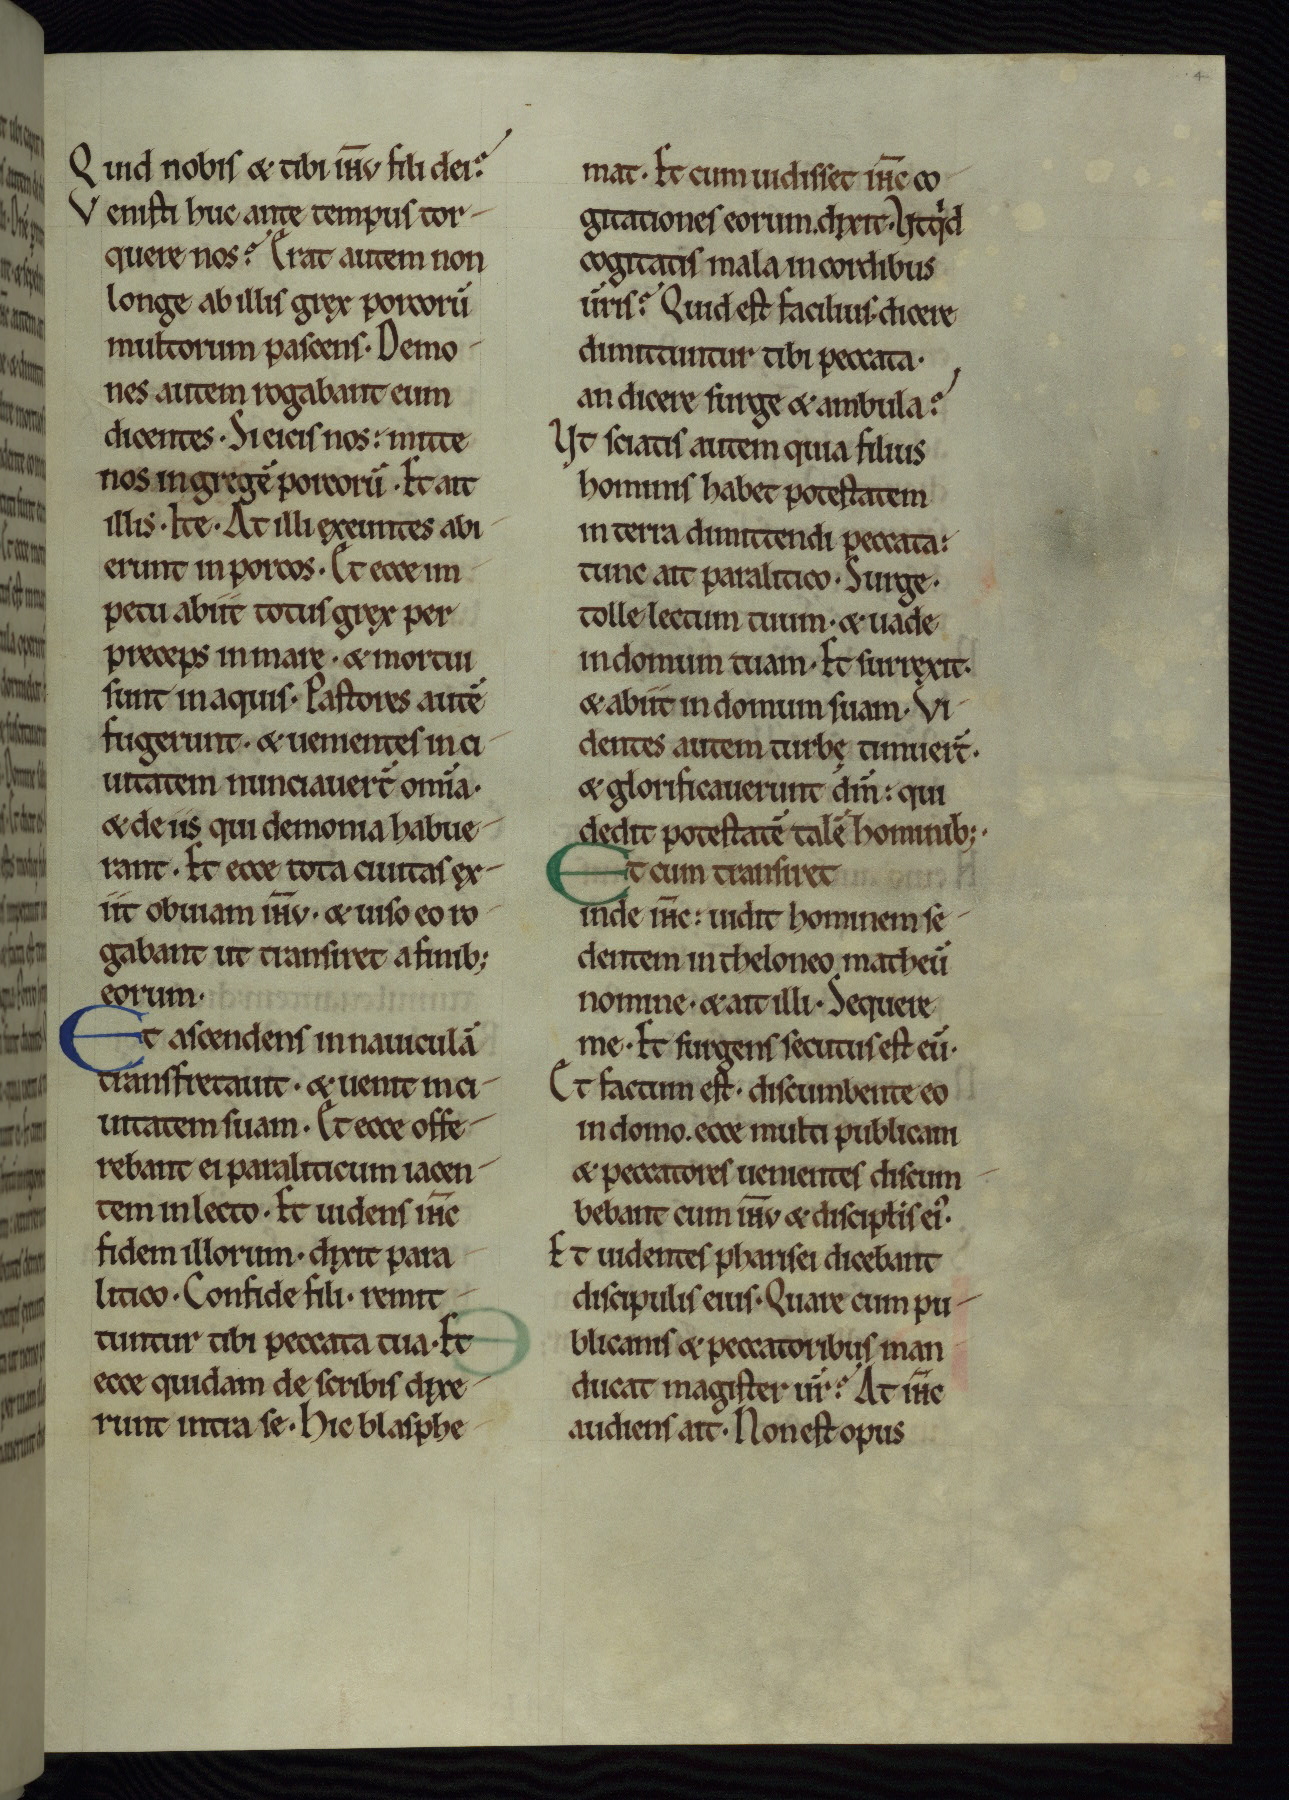 4
Quid nobis & tibi ih̅u fili dei?
Venisti huc ante tempus tor-
quere nos? Erat autem non
longe ab illis grex porcorū
multorum pascens. Demo-
nes autem rogabant eum
dicentes. Si eicis nos: mitte
nos in gregē porcorū. Et ait
illis. Ite. At illi exeuntes abi-
erunt in porcos. Et ecce im-
petu abiit totus grex per
preceps in mare. & mortui
sunt in aquis. Pastores autē
fugerunt. & uenientes in ci-
uitatem nunciauert̄ om̅ia.
& de iis qui demonia habue-
rant. Et ecce tota ciuitas ex-
iit obuiam ih̅u. & uiso eo ro-
gabant ut transiret a finib;
eorum.
Et ascendens in nauiculā
transfretauit. & uenit in ci-
uitatem suam. Et ecce offe-
rebant ei paraliticum iacen-
tem in lecto. Et uidens ih̅c
fidem illorum. dixit para-
litico. Confide fili. remit-
tuntur tibi peccata tua. Et
ecce quidam de scribis dixe-
runt intra se. Hic blasphe-
mat. Et cum uidisset ih̅c co-
gitationes eorum. dixit. Ut qⁱd
cogitatis mala in cordibus
ur̅is? Quid est facilius dicere
dimittuntur tibi peccata.
an dicere surge & ambula?
Ut sciatis autem quia filius
hominis habet potestatem
in terra dimittendi peccata:
tunc ait paralitico. Surge.
tolle lectum tuum. & uade
in domum tuam. Et surrexit.
& abiit in domum suam. Vi-
dentes autem turbę timuert̄.
& glorificauerunt dm̅: qui
dedit potestatē talē hominib;.
Et cum transiret
inde ih̅c: uidit hominem se-
dentem in theloneo matheū
nomine. & ait illi. Sequere
me. Et surgens secutus est eū.
Et factum est. discumbente eo
in domo. ecce multi publicani
& peccatores uenientes discum-
bebant cum ih̅u & discipl̅is ei᾽.
Et uidentes pharisei dicebant
discipulis eius. Quare cum pu-
blicanis & peccatoribus man-
ducat magister ur̅? At ih̅c
audiens ait. Non est opus